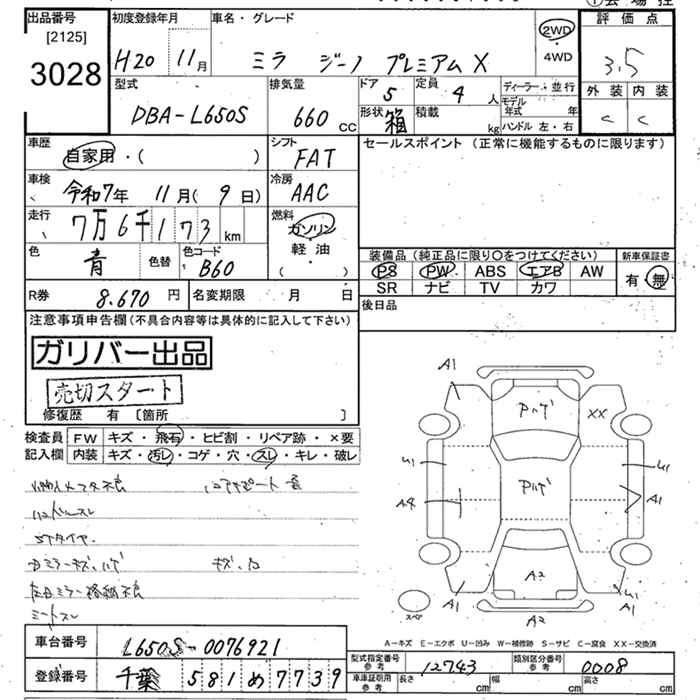 出品番号
[2125]
3028
初度登録年月
H20 11月
車名・グレード
ミラ ジーノ プレミアム X
2WD
・
4WD
評価点
3.5
外装 内装
C C
型式
DBA-L650S
排気量
660 CC
ドア
5
定員
4 人
形状
箱
積載
kg
ディーラー・並行
モデル年式 年
ハンドル 左・右
車歴
自家用・( )
シフト
FAT
セールスポイント (正常に機能するものに限ります)
車検
令和7年 11月( 9日)
冷房
AAC
走行
7万6千173 km
燃料
ガソリン
・
軽油
・
( )
色
青
色替
色コード
B60
装備品 (純正品に限り〇をつけてください)
PS PW ABS エアB AW
SR ナビ TV カワ
新車保証書
有・無
R券 8,670 円
名変期限 月 日
後日品
注意事項申告欄(不具合内容等は具体的に記入して下さい)
ガリバー出品
売切スタート
修復歴 有 [箇所 ]
検査員 FW キズ・飛石・ヒビ割・リペア跡・×要
記入欄 内装 キズ・汚レ・コゲ・穴・スレ・キレ・破レ
ハンドルスレ
STタイヤ
シートスレ
A1
XX
U1
U1
A4
A1
A2
A1
U1
A1
A2
スペア
A-キズ E-エクボ U-凹み W-補修跡 S-サビ C-腐食 XX-交換済
車台番号 L650S-0076921
登録番号 千葉 581 め 7739
型式指定番号
参考
12743
類別区分番号
参考
0008
車庫証明用
参考
長さ cm 幅 cm 高さ cm